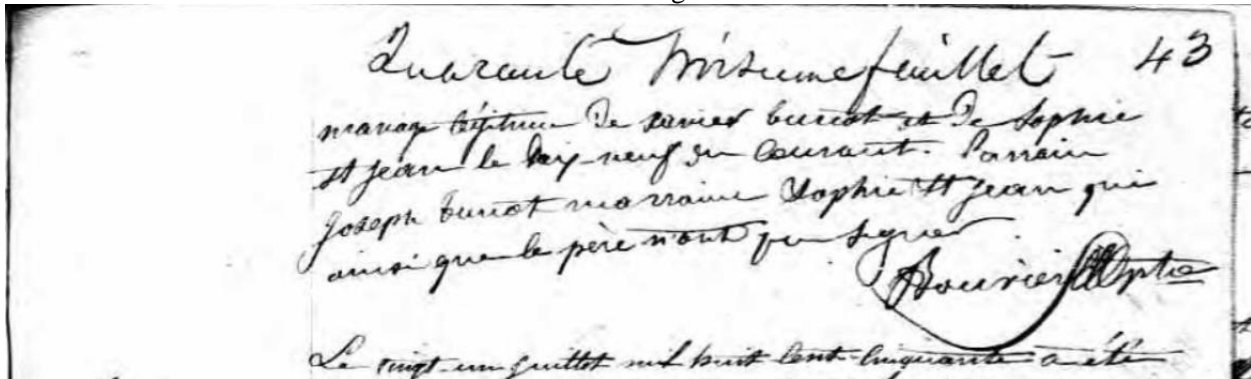 Quarante troisieme feuillet 43
mariage légitime de Xavier buriot et de Sophie
St Jean le dix-neuf du Courant. Parrain
Joseph buriot marraine Sophie St Jean qui
ainsi que le père n'ont pu signer
Bouvier ptre
Le vingt-un juillet mil huit Cent-Cinquante a été